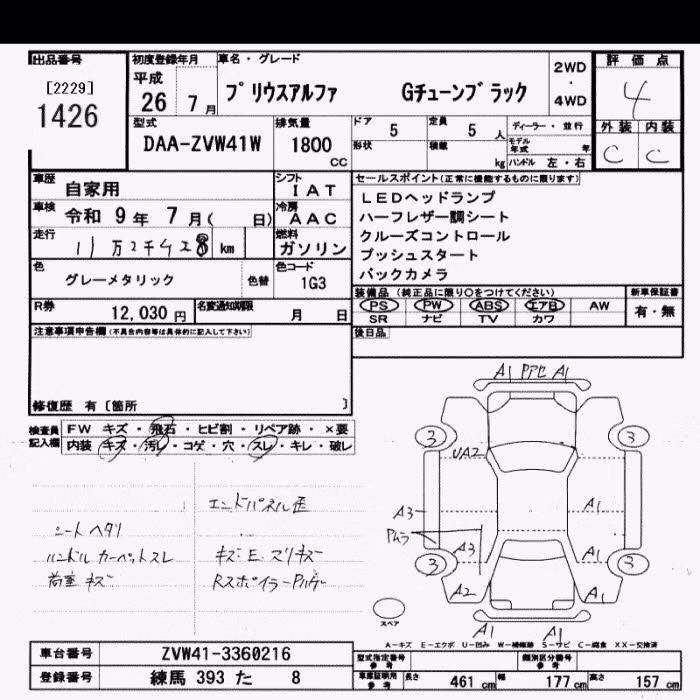 出品番号
[2229]
1426
初度登録年月
平成
26 7月
車名・グレード
プリウスアルファ Gチューンブラック
2WD
・
4WD
評価点
4
外装 内装
C C
型式
DAA-ZVW41W
排気量
1800
CC
ドア 5
定員 5 人
ディーラー・並行
形状
積載 kg
モデル年式 年
ハンドル 左・右
車歴 自家用
シフト
IAT
車検 令和 9年 7月( 日)
冷房
AAC
走行 11万2千428km
燃料
ガソリン
色
グレーメタリック
色替
色コード
1G3
R券 12,030円
名変通知期限 月 日
セールスポイント(正常に機能するものに限ります)
LEDヘッドランプ
ハーフレザー調シート
クルーズコントロール
プッシュスタート
バックカメラ
装備品(純正品に限り○をつけてください)
新車保証書
PS PW ABS エアB AW
有・無
SR ナビ TV カワ
後日品
注意事項申告欄(不具合内容等は具体的に記入して下さい)
修復歴 有〔箇所 〕
検査員記入欄
FW キズ・飛石・ヒビ割・リペア跡・×要
内装 キズ・汚レ・コゲ・穴・スレ・キレ・破レ
エンドパネル歪
シートヘタリ
ハンドル カーペットスレ
荷室キズ
キズ・E・スリキズ
A1 PアセA1
3 3
UA2
A3 A1
Pムラ
A3 A1
3 3
A2 A1
スペア
A1 A1
A-キズ E-エクボ U-凹み W-補修跡 S-サビ C-腐食 XX-交換済
車台番号 ZVW41-3360216
登録番号 練馬 393 た 8
型式指定番号
参考
類別区分番号
参考
車庫証明用
参考
長さ 461cm 幅 177cm 高さ 157cm